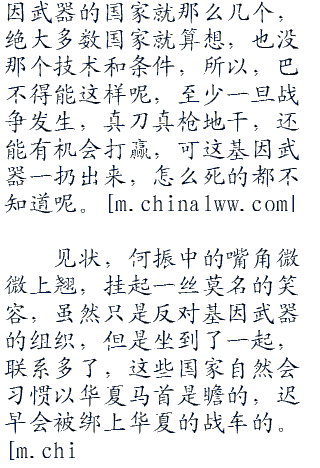 因武器的国家就那么几个，
绝大多数国家就算想，也没
那个技术和条件，所以，巴
不得能这样呢，至少一旦战
争发生，真刀真枪地干，还
能有机会打赢，可这基因武
器一扔出来，怎么死的都不
知道呢。[m.china1ww.com|
见状，何振中的嘴角微
微上翘，挂起一丝莫名的笑
容，虽然只是反对基因武器
的组织，但是坐到了一起，
联系多了，这些国家自然会
习惯以华夏马首是瞻的，迟
早会被绑上华夏的战车的。
[m.chi